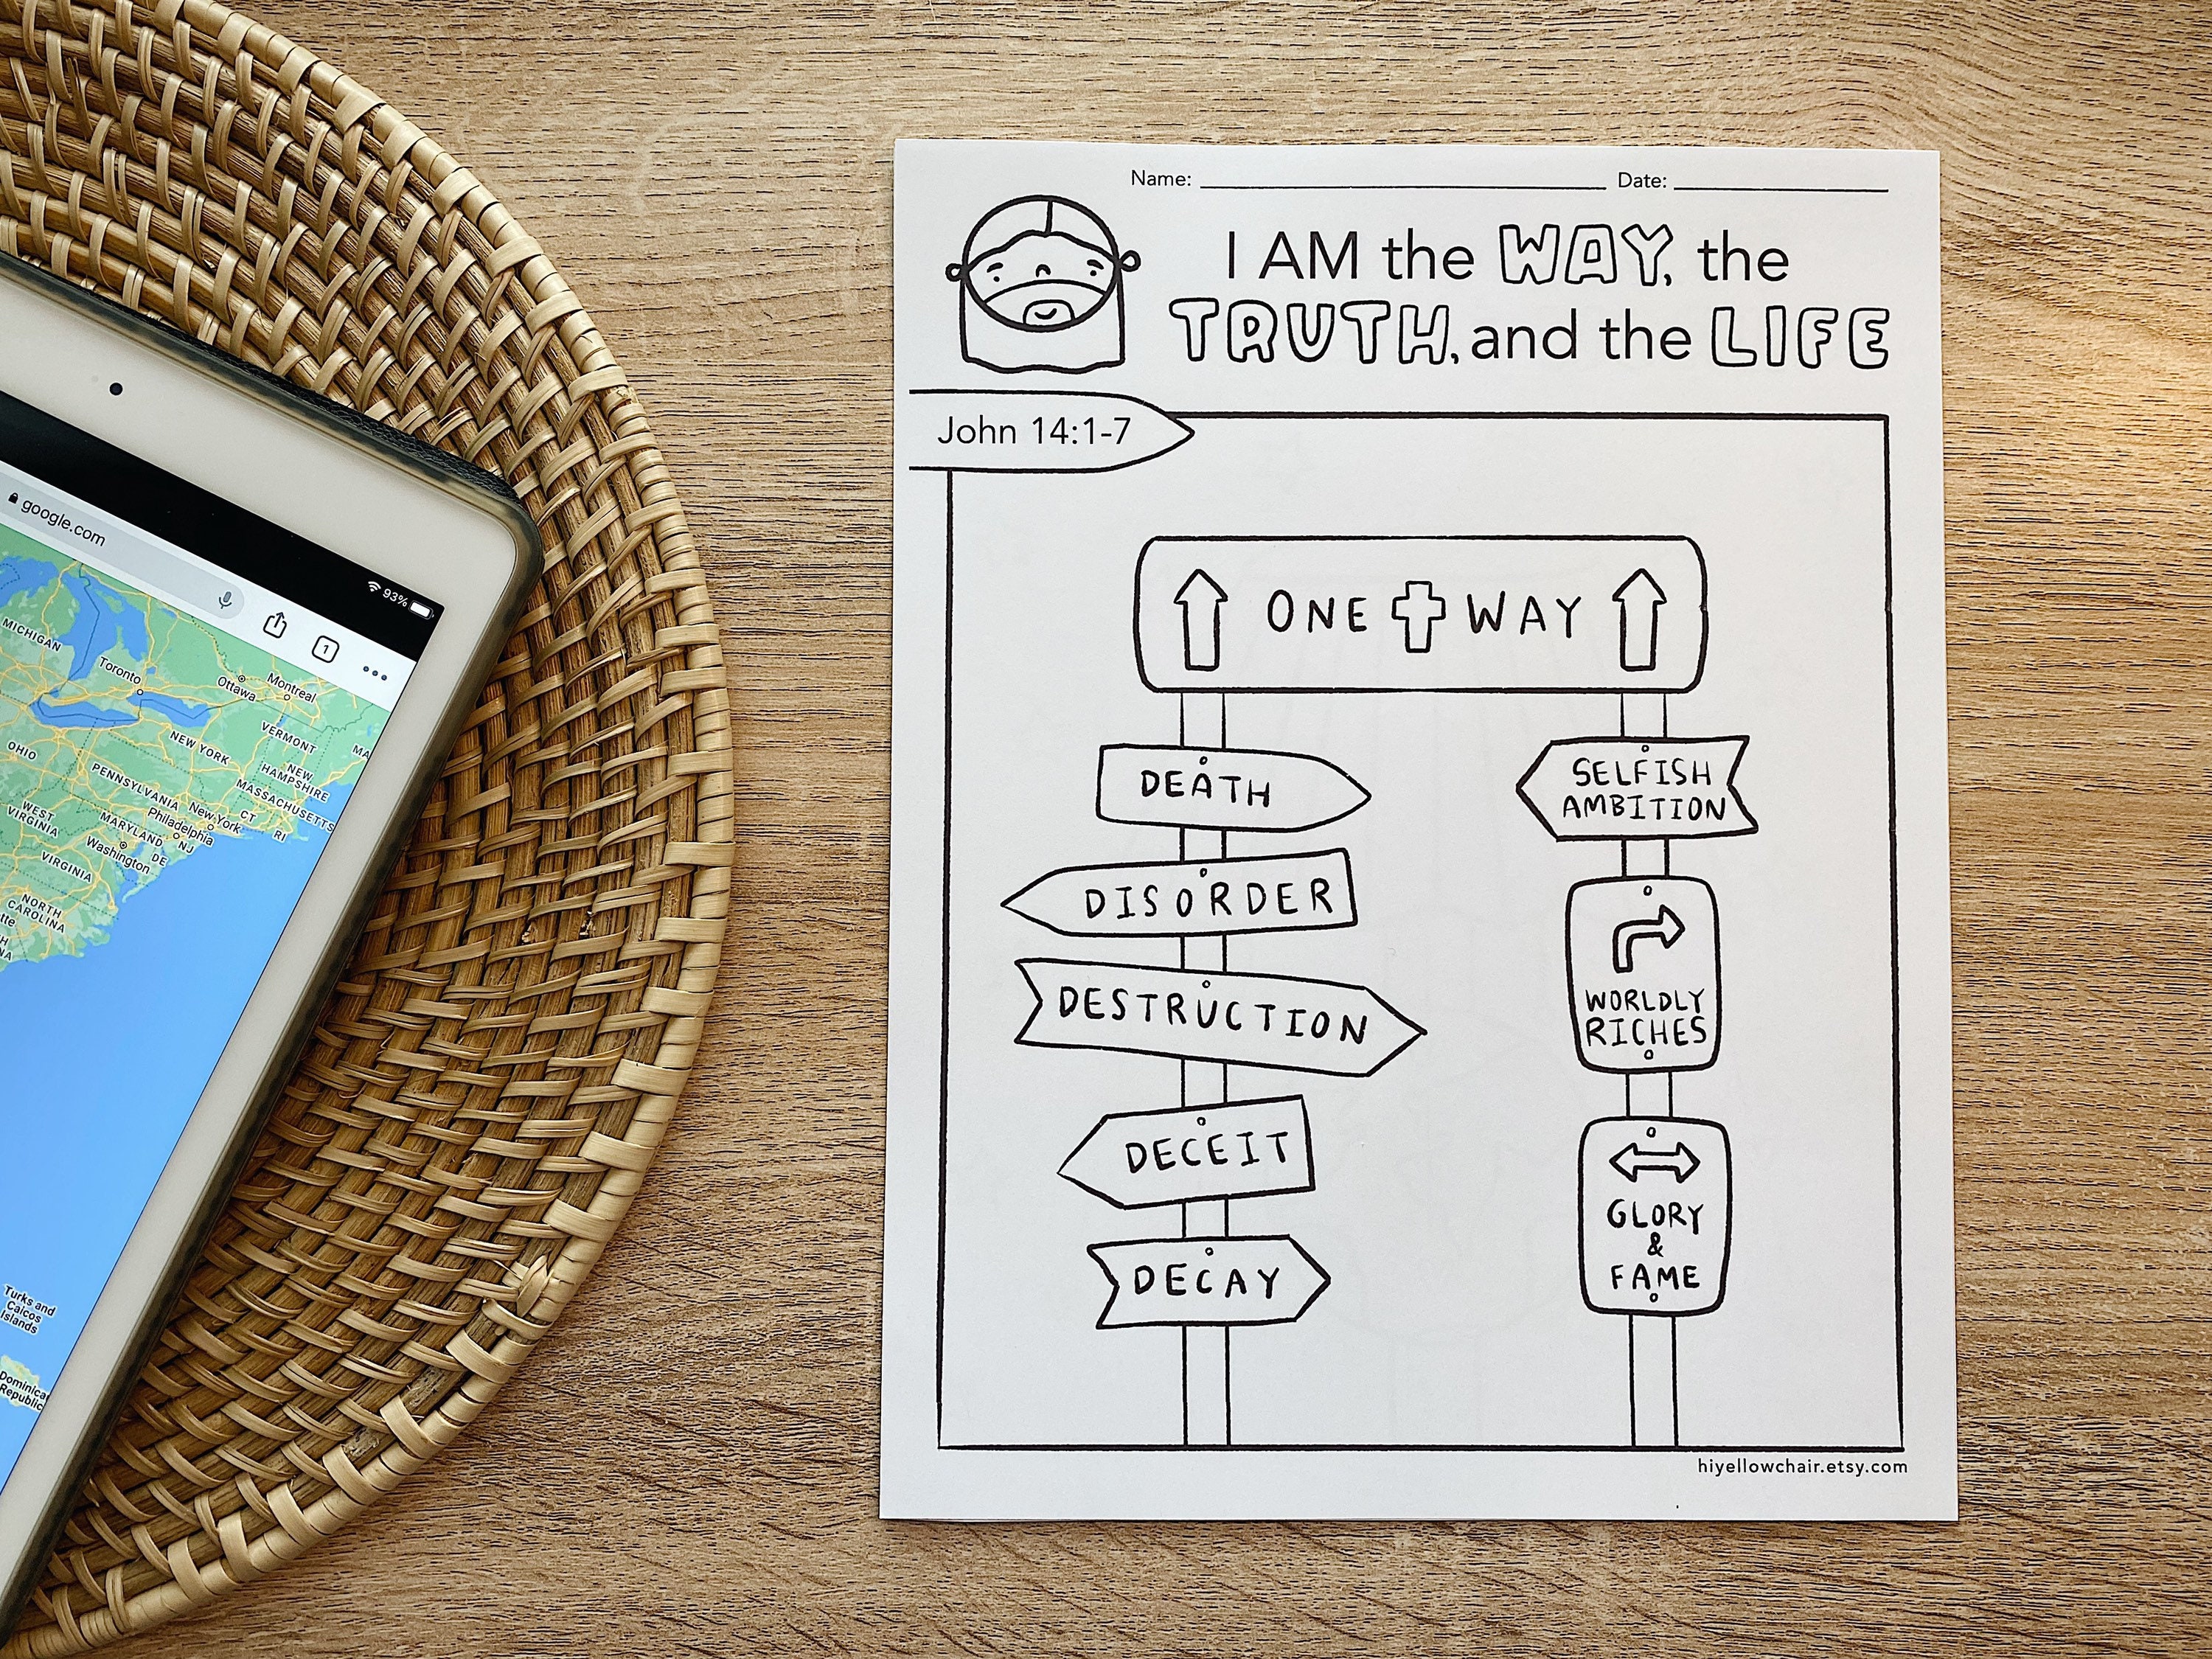 Name: Date:
I AM the WAY, the
TRUTH, and the LIFE
John 14:1-7
ONE WAY
DEATH
DISORDER
DESTRUCTION
DECEIT
DECAY
SELFISH
AMBITION
WORLDLY
RICHES
GLORY
&
FAME
hiyellowchair.etsy.com
93%
google.com
1
MICHIGAN
Toronto
Ottawa
Montreal
VERMONT
NEW YORK
NEW
HAMPSHIRE
OHIO
PENNSYLVANIA
MASSACHUSETTS
New York
CT
RI
WEST
VIRGINIA
MARYLAND
Philadelphia
NJ
DE
Washington
VIRGINIA
NORTH
CAROLINA
Turks and
Caicos
Islands
Dominica
Republic